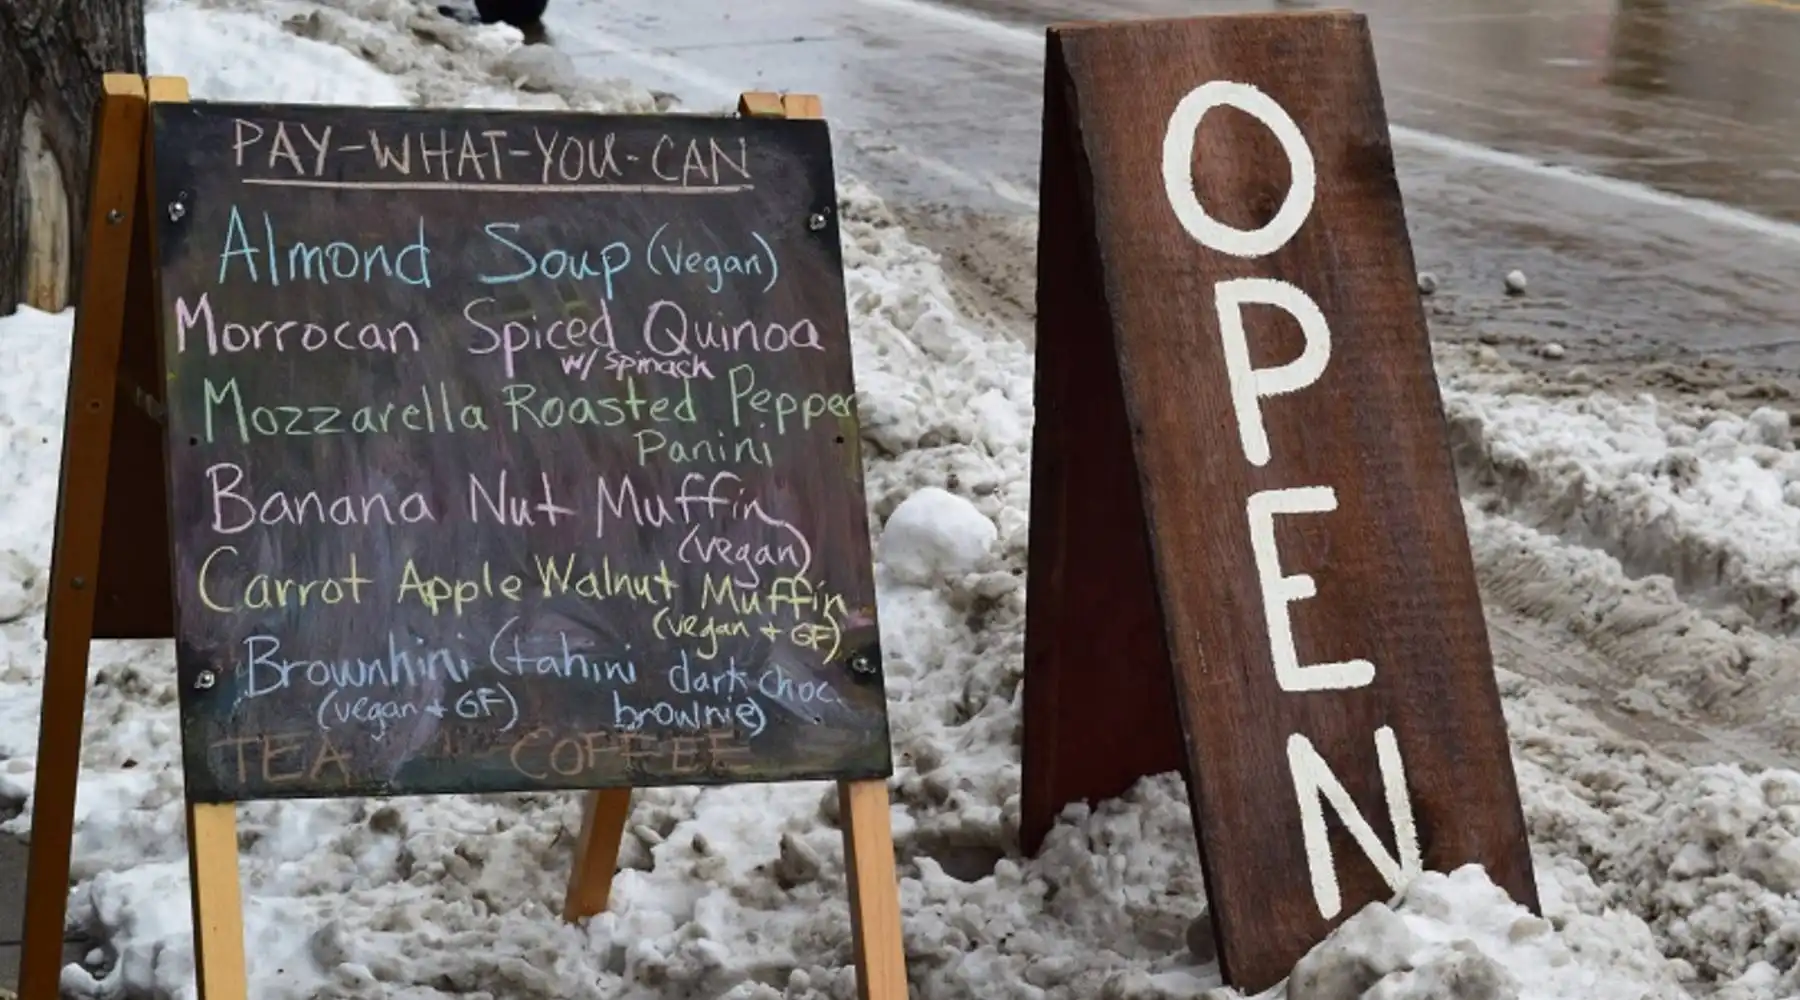 PAY-WHAT-YOU-CAN
Almond Soup (vegan)
Morrocan Spiced Quinoa
w/ spinach
Mozzarella Roasted Pepper
Panini
Banana Nut Muffin
(vegan)
Carrot Apple Walnut Muffin
(vegan + GF)
Brownhini (tahini dark choc.
(vegan + GF) brownie)
TEA COFFEE
OPEN